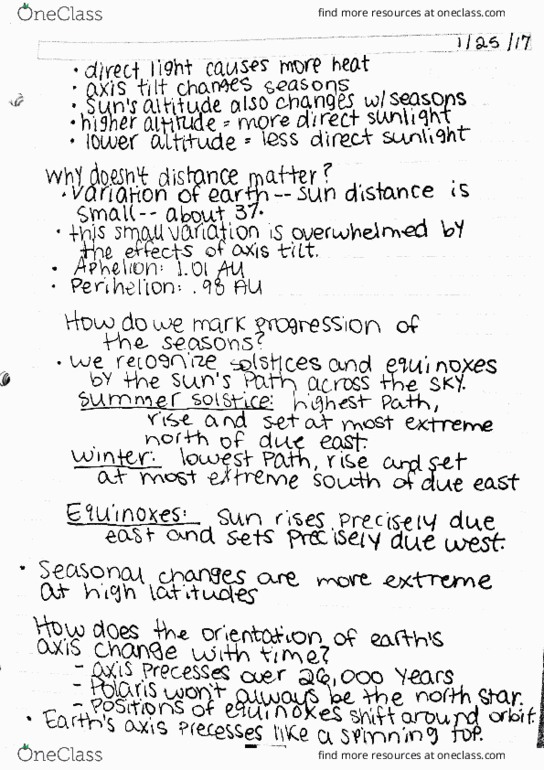 OneClass
find more resources at oneclass.com
1/25/17
• direct light causes more heat
• axis tilt changes seasons
• Sun's altitude also changes w/seasons
• higher altitude = more direct sunlight
• lower altitude = less direct sunlight
why doesn't distance matter?
• Variation of earth -- sun distance is
small -- about 3%.
• this small variation is overwhelmed by
the effects of axis tilt.
• Aphelion: 1.01 AU
• Perihelion: .98 AU
How do we mark progression of
the seasons?
• we recognize solstices and equinoxes
by the sun's path across the sky.
Summer solstice: highest path,
rise and set at most extreme
north of due east.
Winter: lowest path, rise and set
at most extreme south of due east
Equinoxes: Sun rises precisely due
east and sets precisely due west.
• Seasonal changes are more extreme
at high latitudes
How does the orientation of earth's
axis change with time?
- axis precesses over 26,000 years
- Polaris won't always be the north star.
- positions of equinoxes shift around orbit.
• Earth's axis precesses like a spinning top.
OneClass
find more resources at oneclass.com